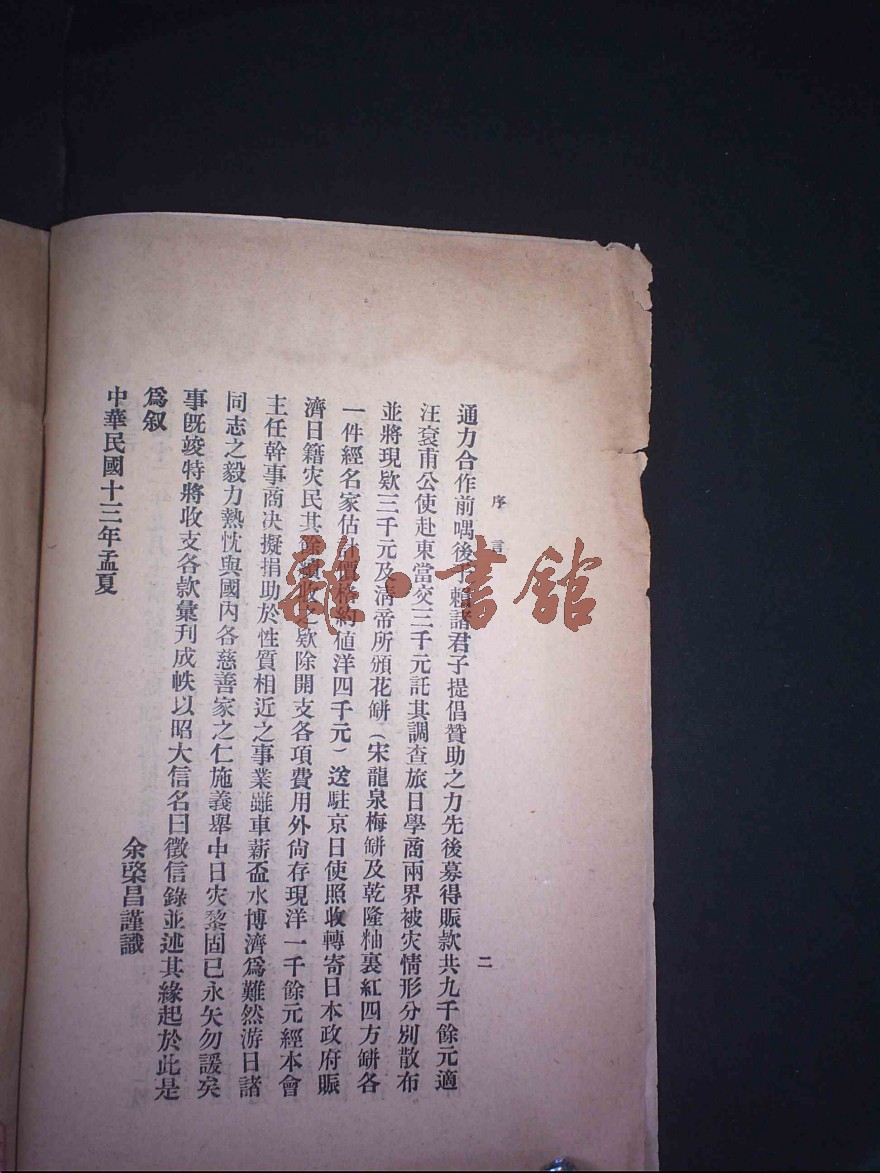 序言
二
通力合作前喁後于賴諸君子提倡贊助之力先後募得賑款共九千餘元適
汪袞甫公使赴東當交三千元託其調查旅日學商兩界被灾情形分别散布
並將現欵三千元及淸帝所頒花缾(宋龍泉梅缾及乾隆柚裏紅四方缾各
一件經名家估計價格約值洋四千元)送駐京日使照收轉寄日本政府賑
濟日籍灾民其餘續收之欵除開支各項費用外尙存現洋一千餘元經本會
主任幹事商决擬捐助於性質相近之事業雖車薪盃水博濟爲難然游日諸
同志之毅力熱忱與國內各慈善家之仁施義舉中日灾黎固已永矢勿諼矣
事旣竣特將收支各款彙刊成帙以昭大信名曰徵信錄並述其緣起於此是
爲叙
中華民國十三年孟夏
余棨昌謹識
雜·書館